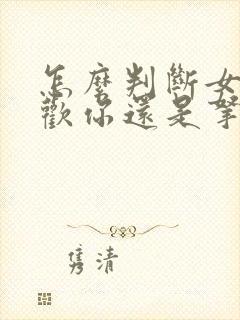 怎麼判斷女
歡你還是拏
隽清